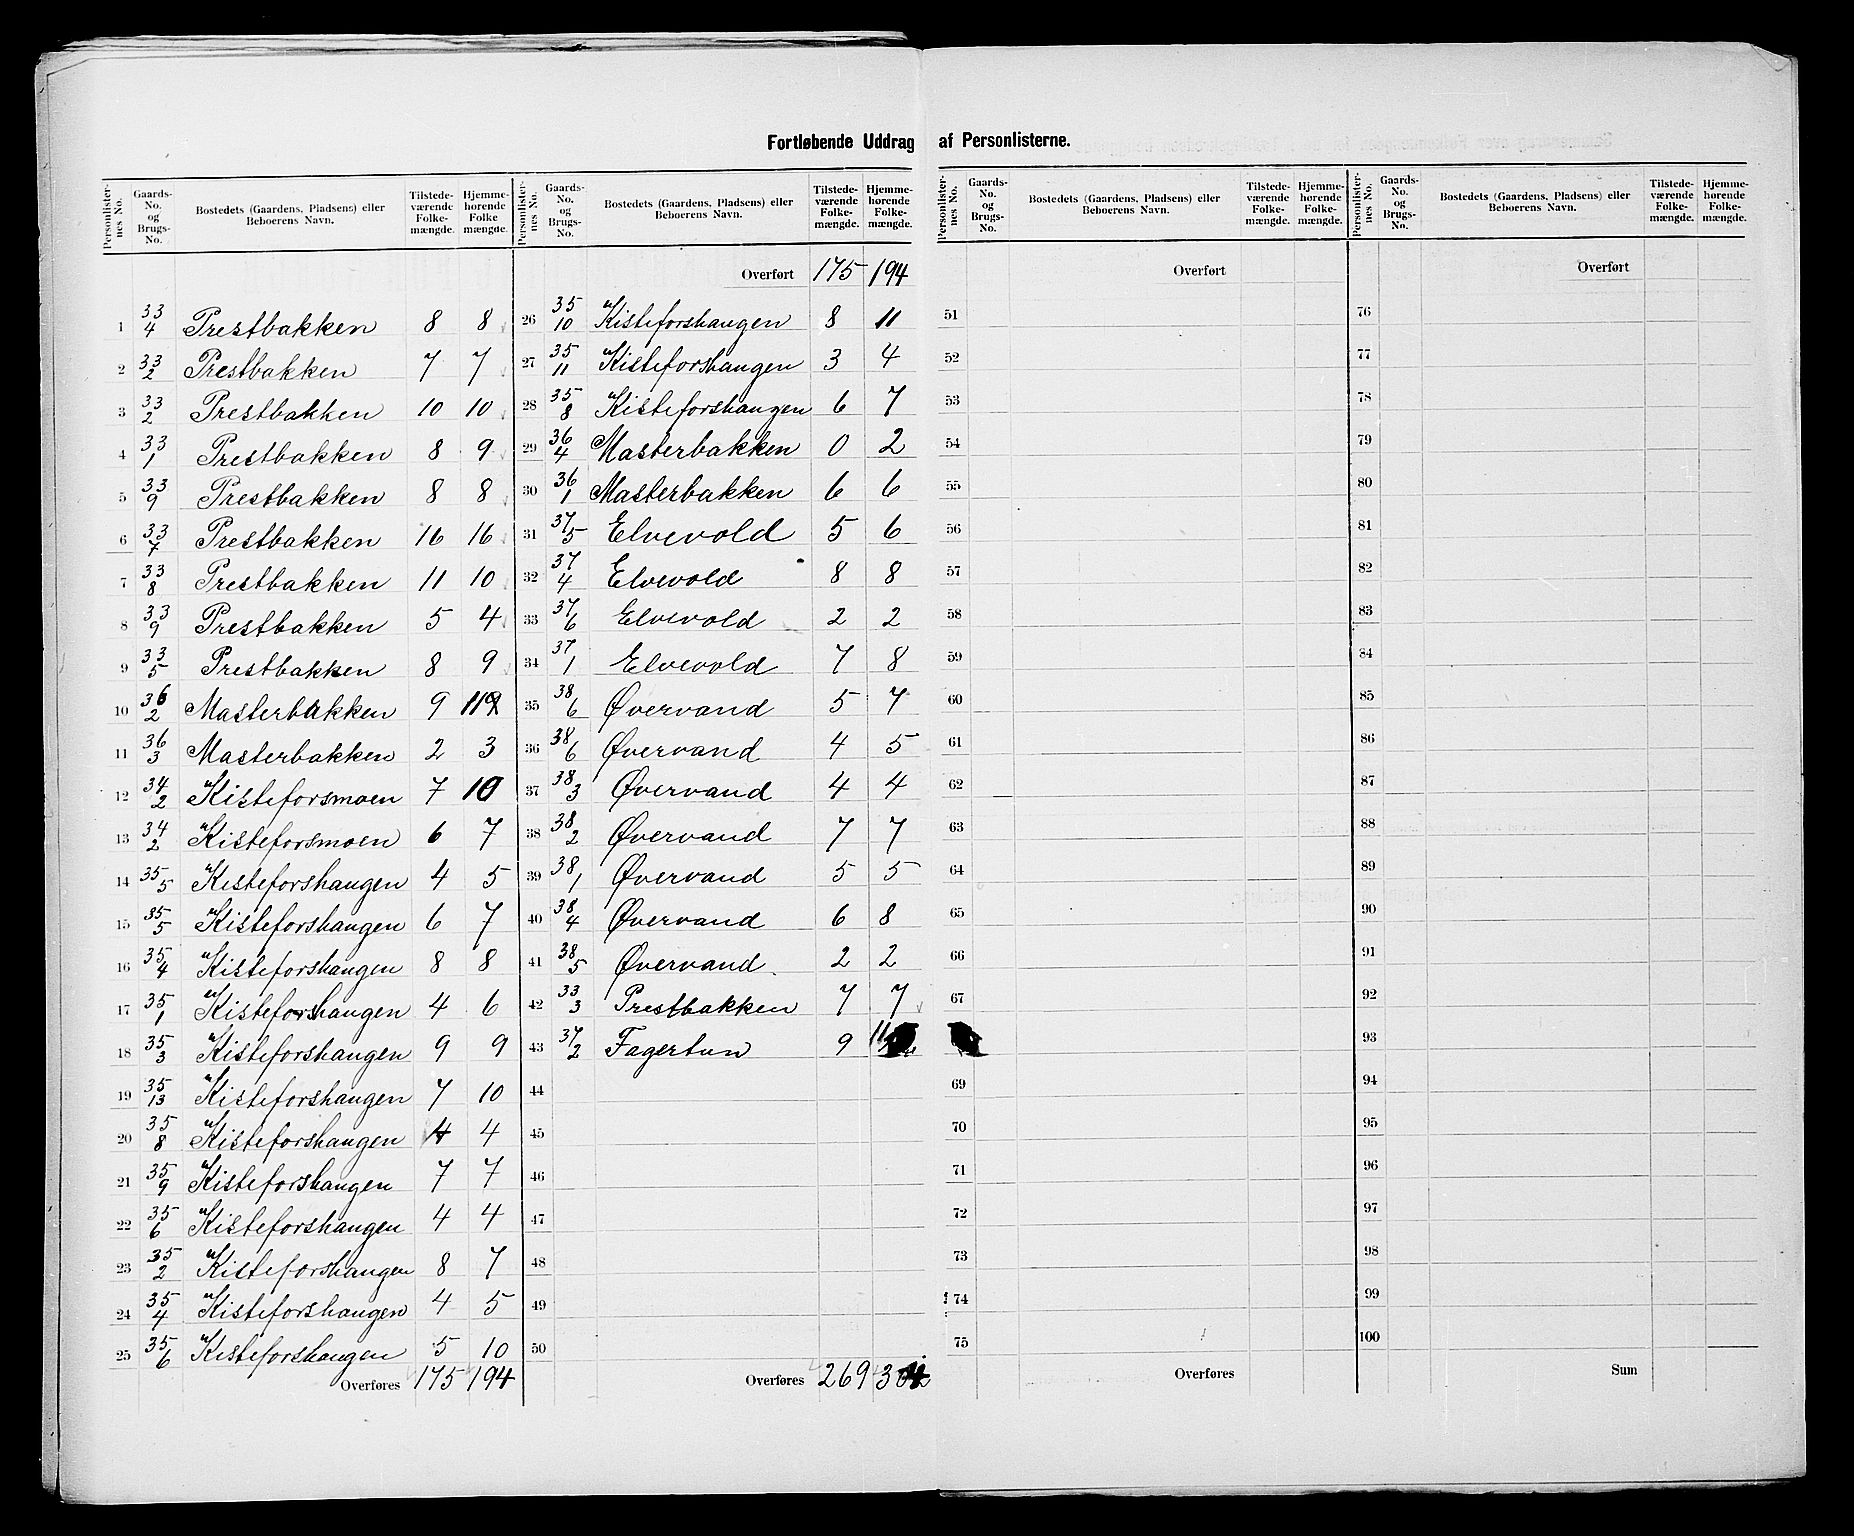 Fortløbende Uddrag af Personlisterne.
Personlister-nes No. | Gaards-No. og Brugs-No. | Bostedets (Gaardens, Pladsens) eller Beboerens Navn. | Tilstede-værende Folke-mængde. | Hjemme-hørende Folke mængde.
1 33/4 Prestbakken 8 8
2 33/2 Prestbakken 7 7
3 33/2 Prestbakken 10 10
4 33/1 Prestbakken 8 9
5 33/9 Prestbakken 8 8
6 33/7 Prestbakken 16 16
7 33/8 Prestbakken 11 10
8 33/9 Prestbakken 5 4
9 33/5 Prestbakken 8 9
10 36/2 Masterbakken 9
11 36/3 Masterbakken 2 3
12 34/2 Kisteforsmoen 7 10
13 34/2 Kisteforsmoen 6 7
14 35/5 Kisteforshaugen 4 5
15 35/5 Kisteforshaugen 6 7
16 35/4 Kisteforshaugen 8 8
17 35/1 Kisteforshaugen 4 6
18 35/3 Kisteforshaugen 9 9
19 35/13 Kisteforshaugen 7 10
20 35/8 Kisteforshaugen 4 4
21 35/9 Kisteforshaugen 7 7
22 35/6 Kisteforshaugen 4 4
23 35/2 Kisteforshaugen 8 7
24 35/4 Kisteforshaugen 4 5
25 35/6 Kisteforshaugen 5 10
Overføres 175 194
Personlister-nes No. | Gaards-No. og Brugs-No. | Bostedets (Gaardens, Pladsens) eller Beboerens Navn. | Tilstede-værende Folke-mængde. | Hjemme-hørende Folke-mængde.
Overført 175 194
26 35/10 Kisteforshaugen 8 11
27 35/11 Kisteforshaugen 3 4
28 35/8 Kisteforshaugen 6 7
29 36/4 Masterbakken 0 2
30 36/1 Masterbakken 6 6
31 37/5 Elvevold 5 6
32 37/4 Elvevold 8 8
33 37/6 Elvevold 2 2
34 37/1 Elvevold 7 8
35 38/6 Øvervand 5 7
36 38/6 Øvervand 4 5
37 38/3 Øvervand 4 4
38 38/2 Øvervand 7 7
39 38/1 Øvervand 5 5
40 38/4 Øvervand 6 8
41 38/5 Øvervand. 2 2
42 33/3 Prestbakken 7 7
43 37/2 Fagertun 9
44
45
46
47
48
49
50
Overføres 269
Personlister-nes No. | Gaards-No. og Brugs-No. | Bostedets (Gaardens, Pladsens) eller Beboerens Navn. | Tilstede-værende Folke-mængde. | Hjemme-hørende Folke-mængde.
Overført
51
52
53
54
55
56
57
58
59
60
61
62
63
64
65
66
67
69
70
71
72
73
74
75
Overføres
Personlister-nes No. | Gaards-No. og Brugs-No. | Bostedets (Gaardens, Pladsens) eller Beboerens Navn. | Tilstede-værende Folke-mængde. | Hjemme-hørende Folke-mængde.
Overført
76
77
78
79
80
81
82
83
84
85
86
87
88
89
90
91
92
93
94
95
96
97
98
99
100
Sum